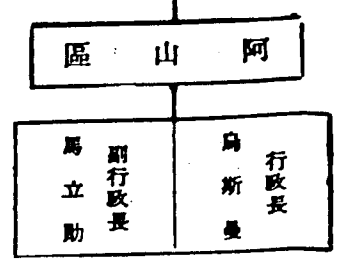 阿山區
行政長
烏斯曼
副行政長
馬立勛